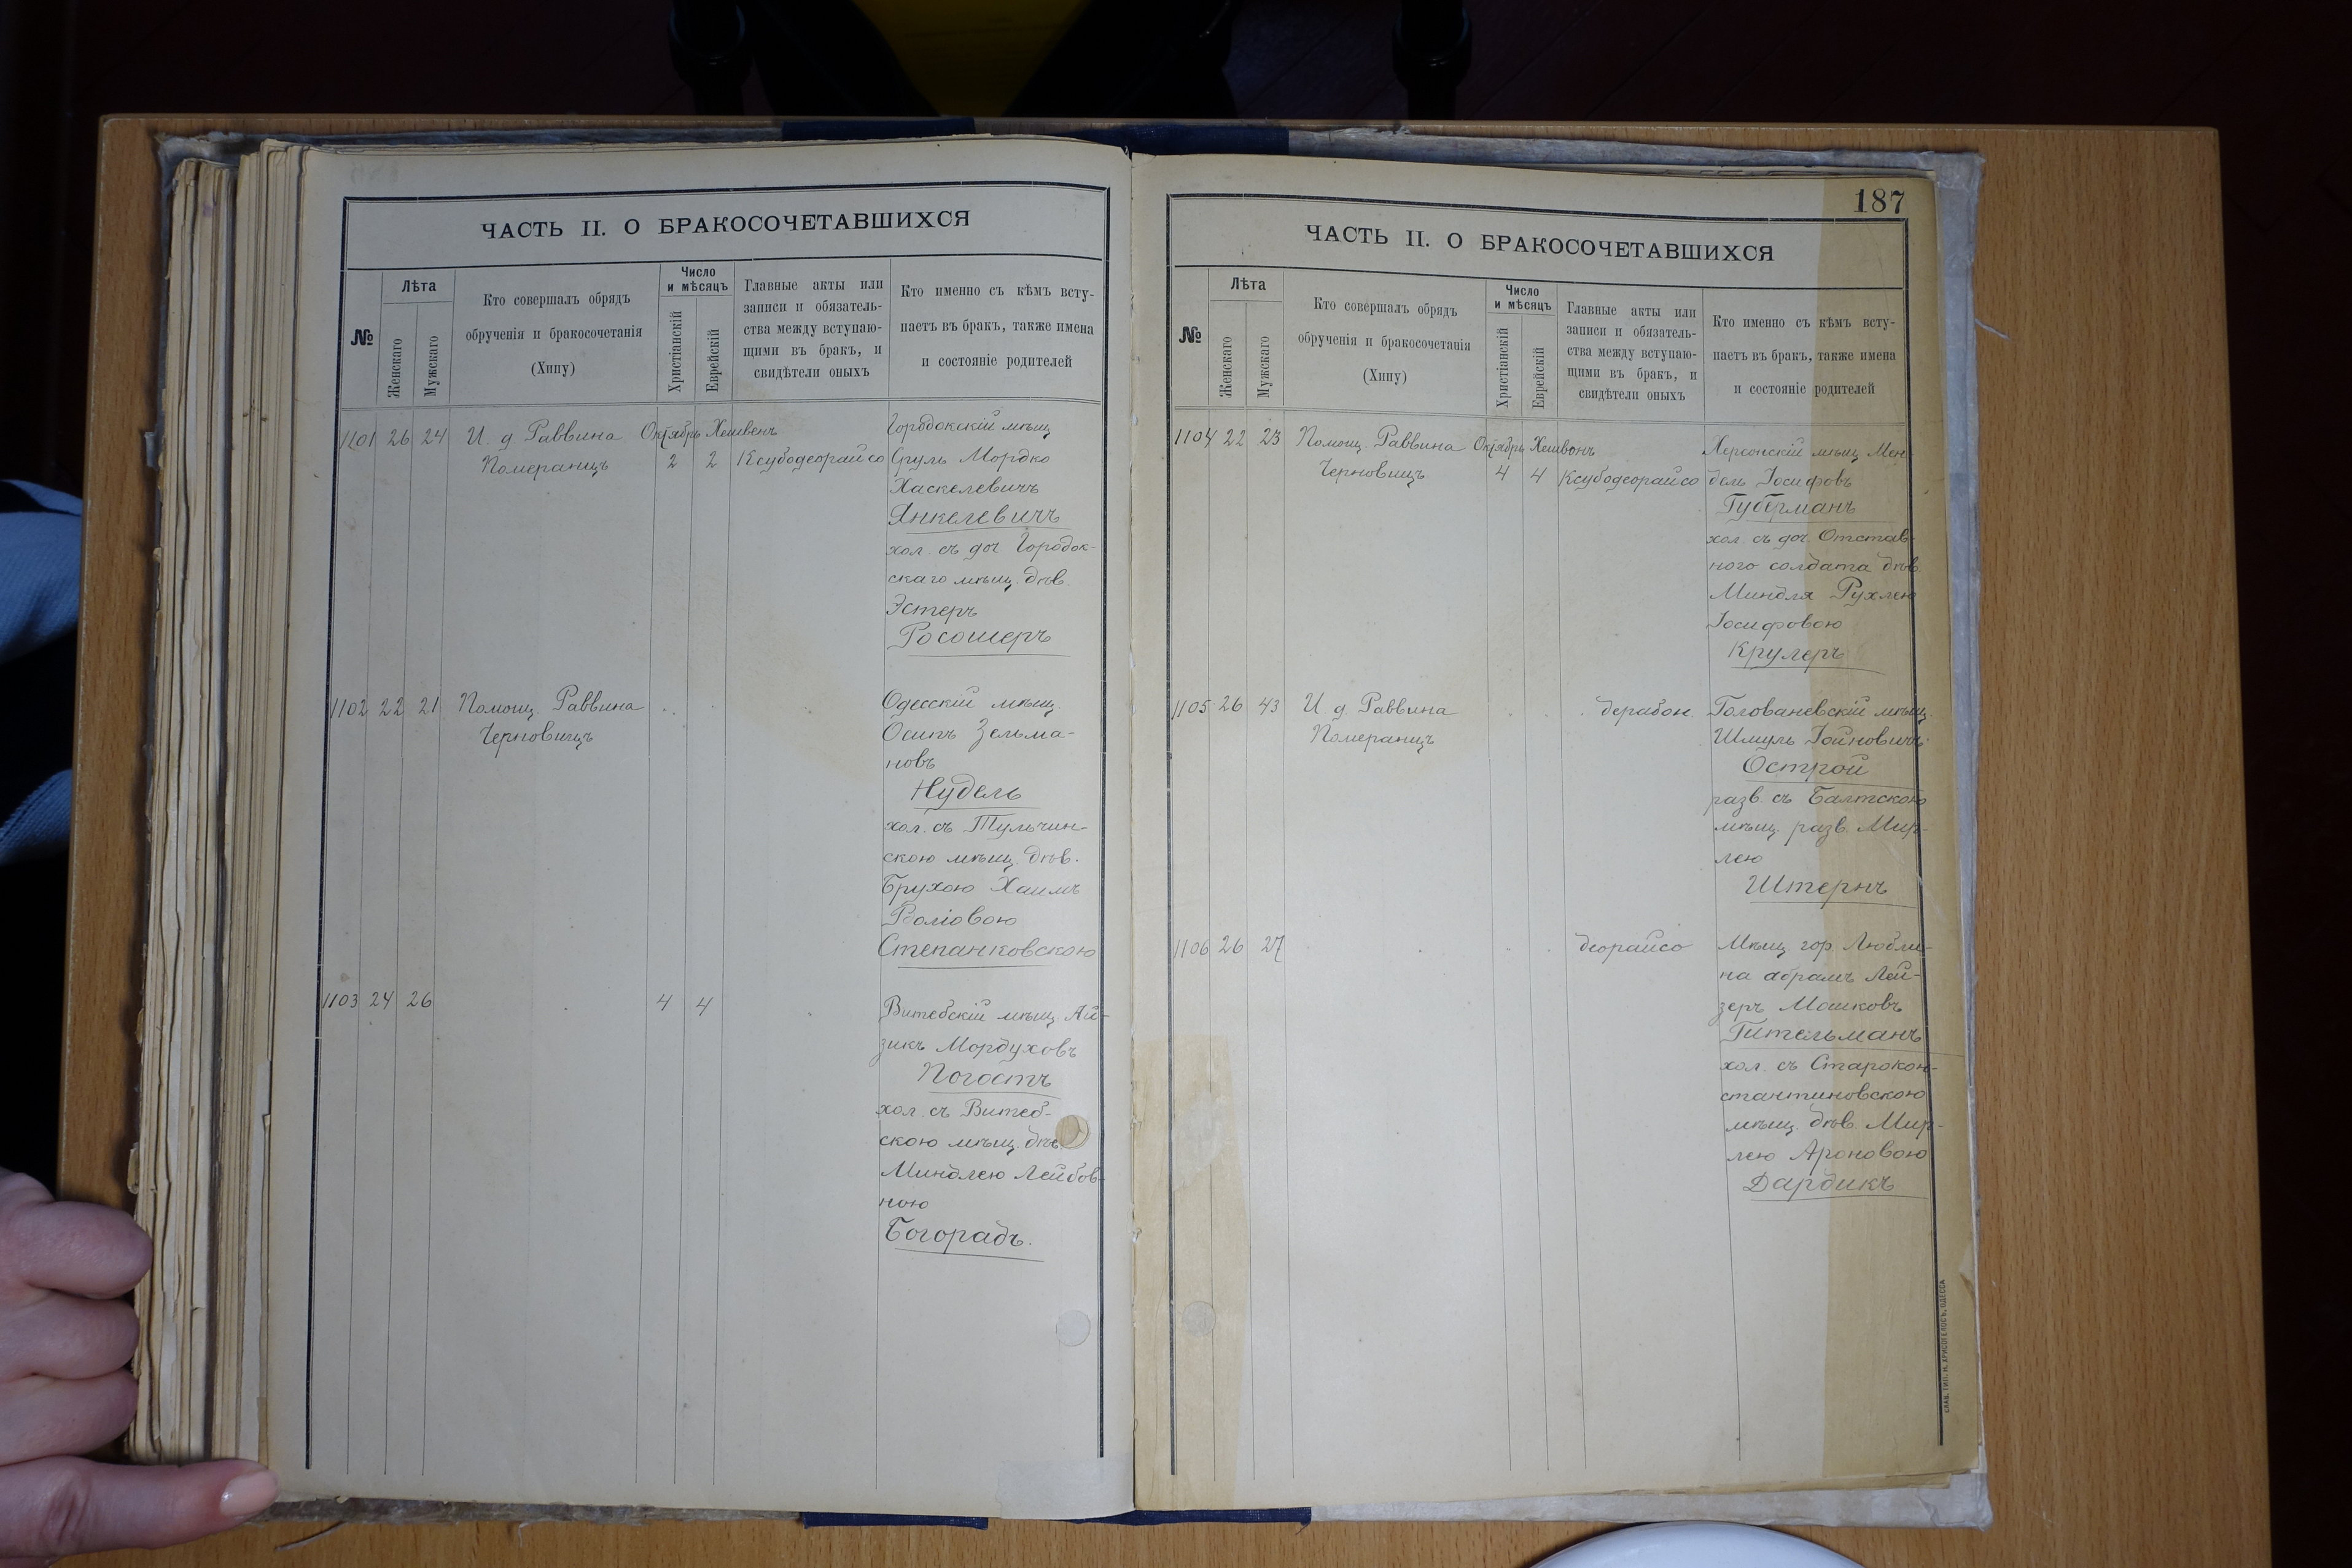 ЧАСТЬ II. О БРАКОСОЧЕТАВШИХСЯ
№
Лѣта
Женскаго
Мужскаго
Кто совершалъ обрядъ
обрученія и бракосочетанія
(Хипу)
Число
и мѣсяцъ
Христіанскій
Еврейскій
Главные акты или
записи и обязатель-
ства между вступаю-
щими въ бракъ, и
свидѣтели оныхъ
Кто именно съ кѣмъ всту-
паетъ въ бракъ, также имена
и состояніе родителей
1101 26 24 И. д Раввина Октябрь Хешвенъ Городокскій мѣщ
Померанцъ 2 2 Ксубодеорайсо Сруль Мордко
Хаскелевичъ
Янкелевичъ
хол. съ доч Городок-
скаго мѣщ. дѣв.
Эстеръ
Росошеръ
1102 22 21 Помощ. Раввина Одесскій мѣщ.
Черновицъ Осипъ Зельма-
новъ
Нудель
хол. съ Тульчин-
скою мѣщ. дѣв.
Брухою Хаимъ
Воліовою
Степанковскою
1103 24 26 4 4 Витебскій мѣщ. Ай-
зикъ Мордуховъ
Погостъ
хол. съ Витеб-
скою мѣщ. дѣв
Миндлею Лейбов-
ною
Богорадъ.
187
ЧАСТЬ II. О БРАКОСОЧЕТАВШИХСЯ
№
Лѣта
Женскаго
Мужскаго
Кто совершалъ обрядъ
обрученія и бракосочетанія
(Хипу)
Число
и мѣсяцъ
Христіанскій
Еврейскій
Главные акты или
записи и обязатель-
ства между вступаю-
щими въ бракъ, и
свидѣтели оныхъ
Кто именно съ кѣмъ всту-
паетъ въ бракъ, также имена
и состояніе родителей
1104 22 23 Помощ. Раввина Октябрь Хешвонъ Херсонскій мѣщ Мен-
Черновицъ 4 4 Ксубодеорайсо дель Іосифовъ
Губерманъ
хол. съ доч. Отстав-
ного солдата дѣв.
Миндля Рухлею
Іосифовою
Крулеръ
1105 26 43 И. д. Раввина дерабон. Голованевскій мѣщ.
Померанцъ Шмуль Іойновичъ
Острой
разв. съ Балтскою
мѣщ. разв. Мир-
лею
Штернъ
1106 26 27 деорайсо Мѣщ гор. Любли-
на Абрамъ Лей-
зеръ Мошковъ
Гительманъ
хол. съ Старокон-
стантиновскою
мѣщ. дѣв. Мир-
лею Ароновою
Дардикъ
СЛАВ. ТИП. Н. ХРИСОГЕЛОСЪ, ОДЕССА